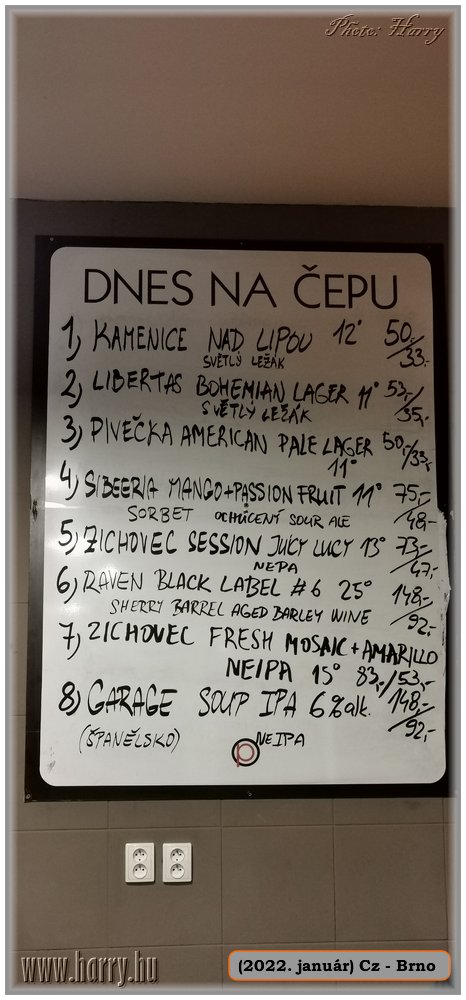 Photo: Harry
DNES NA ČEPU
1) KAMENICE NAD LIPOU 12° 50,-/33.-
SVĚTLÝ LEŽÁK
2) LIBERTAS BOHEMIAN LAGER 11° 53,-/35,-
SVĚTLÝ LEŽÁK
3) PIVEČKA AMERICAN PALE LAGER 50,-/33,-
11°
4) SIBEERIA MANGO+PASSION FRUIT 11° 75,-/48,-
SORBET OCHUCENÝ SOUR ALE
5) ZICHOVEC SESSION JUICY LUCY 13° 73,-/47,-
NEPA
6) RAVEN BLACK LABEL #6 25° 148,-/92,-
SHERRY BARREL AGED BARLEY WINE
7) ZICHOVEC FRESH MOSAIC+AMARILLO
NEIPA 15° 83,-/53,-
8) GARAGE SOUP IPA 6%alk. 148,-/92,-
(ŠPANĚLSKO) NEIPA
www.harry.hu
(2022. január) Cz - Brno